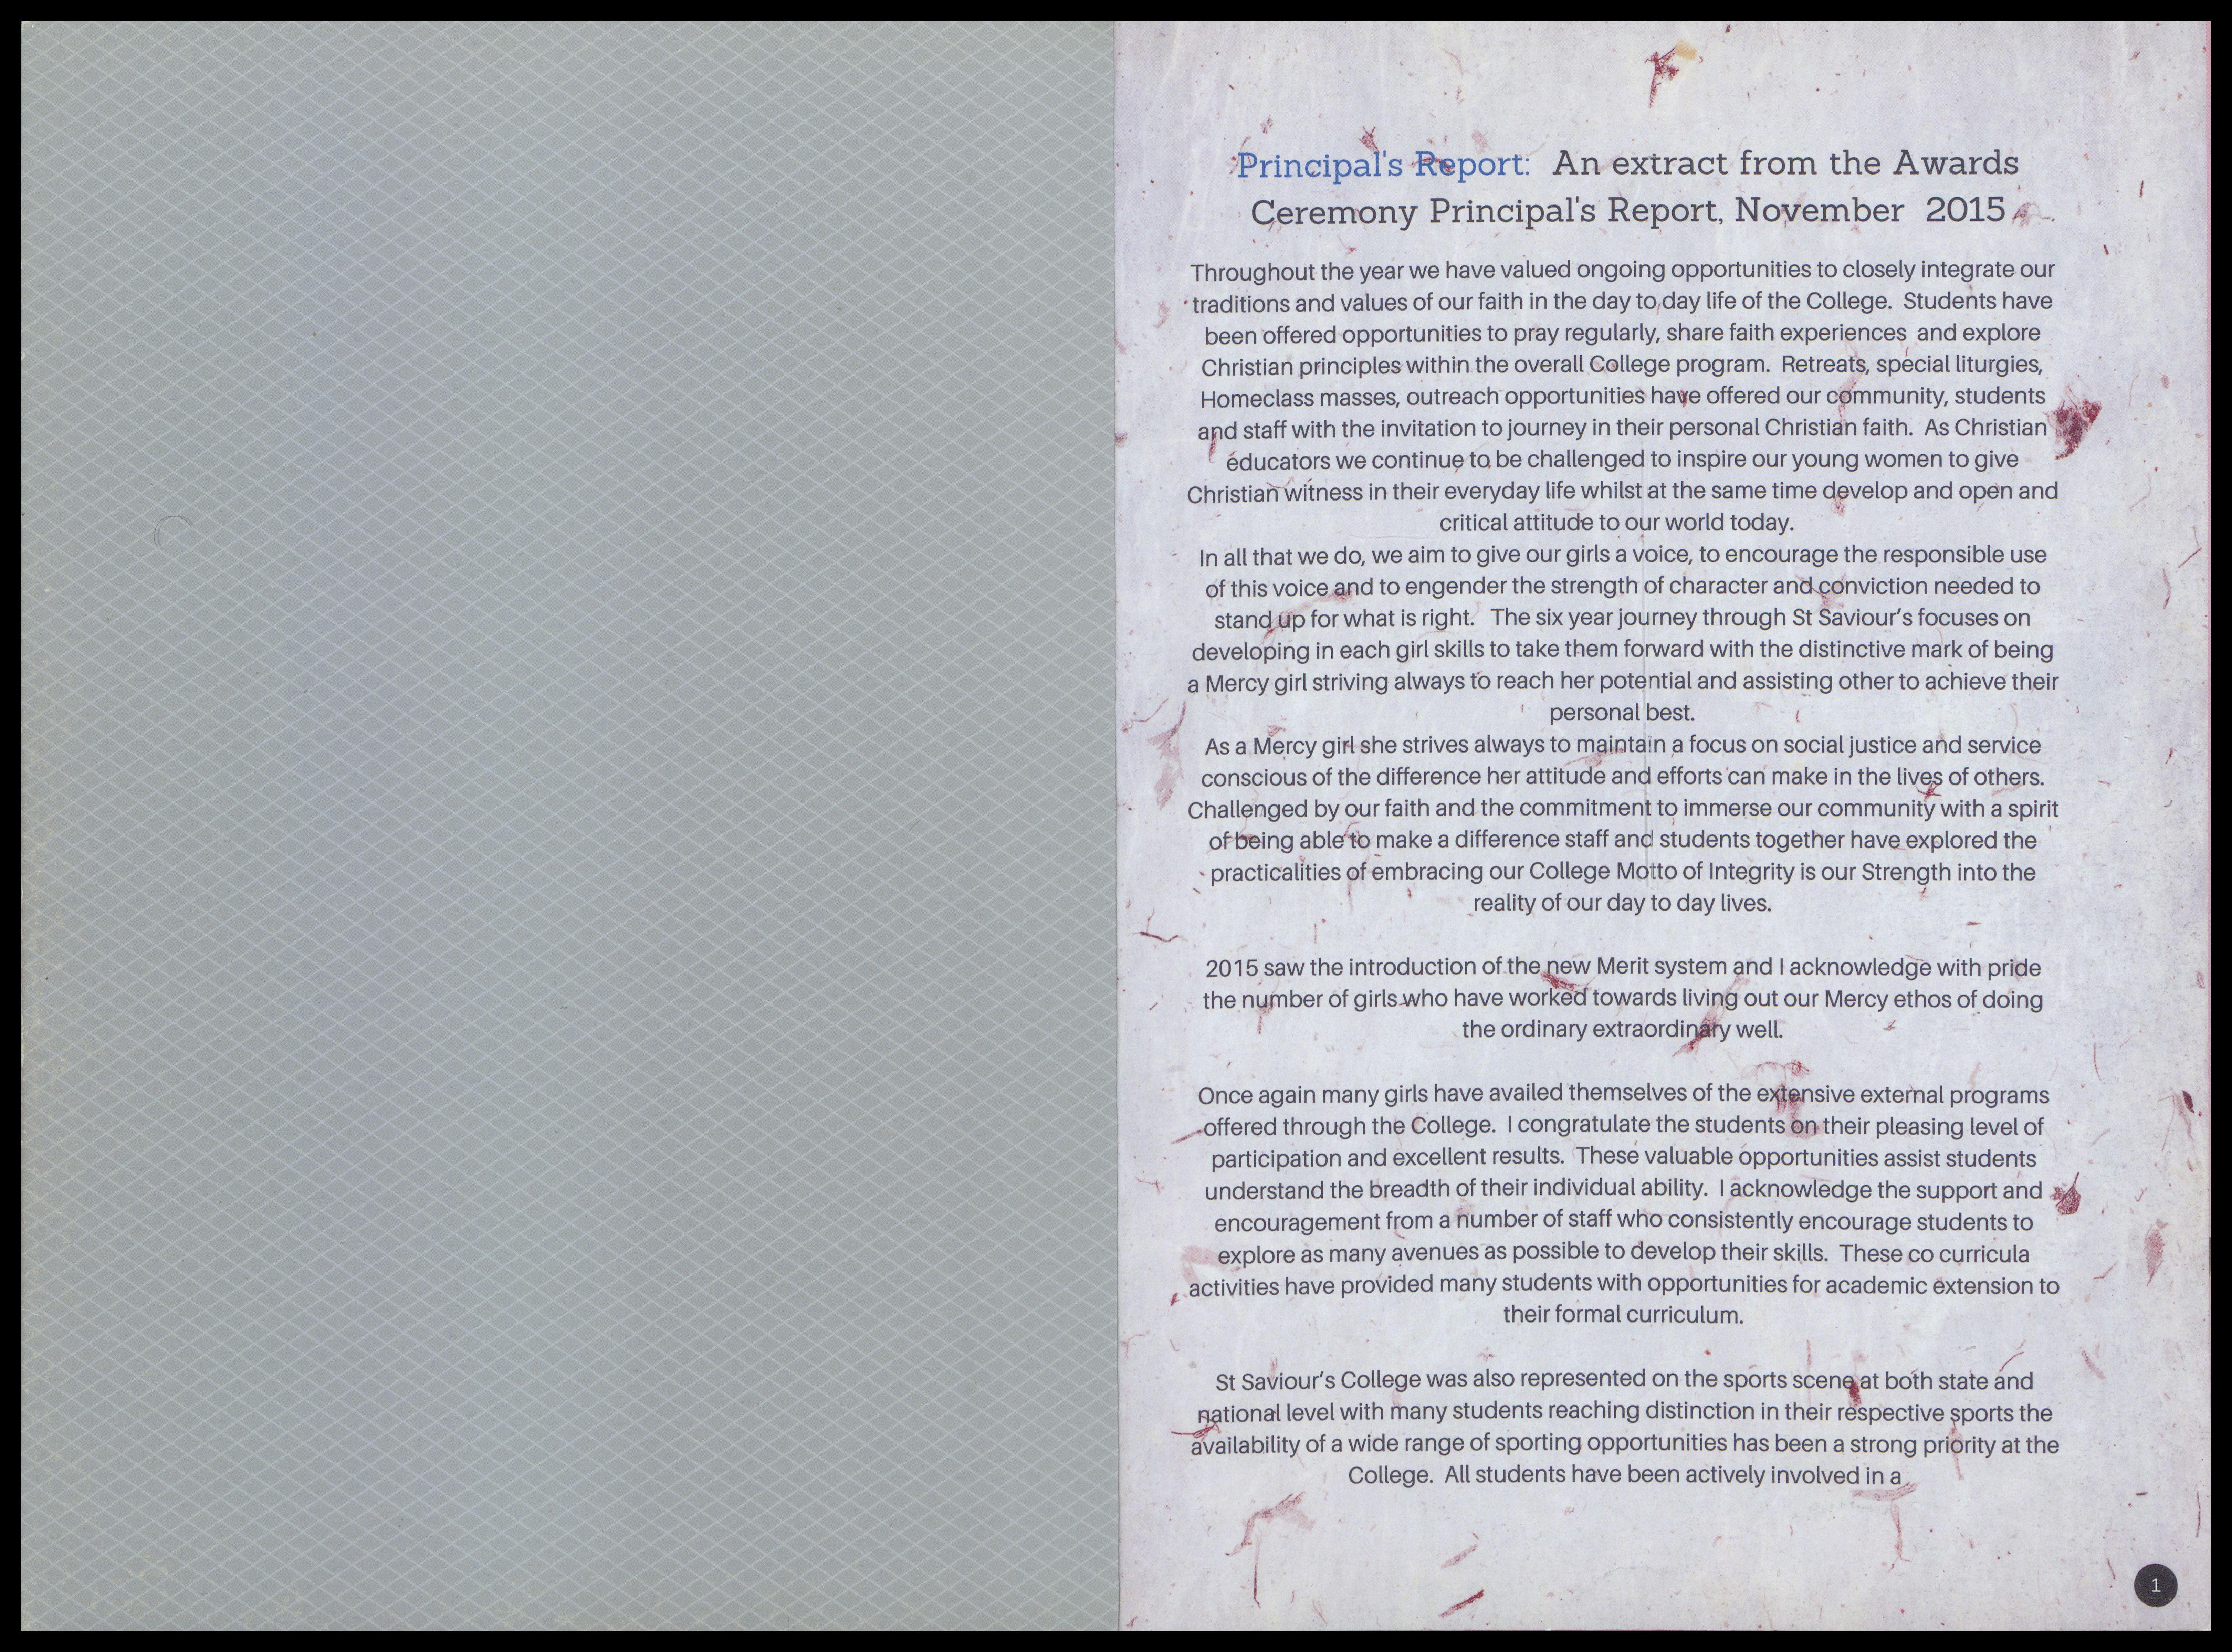 Principal's Report: An extract from the Awards
Ceremony Principal's Report, November 2015
Throughout the year we have valued ongoing opportunities to closely integrate our
traditions and values of our faith in the day to day life of the College. Students have
been offered opportunities to pray regularly, share faith experiences and explore
Christian principles within the overall College program. Retreats, special liturgies,
Homeclass masses, outreach opportunities have offered our community, students
and staff with the invitation to journey in their personal Christian faith. As Christian
educators we continue to be challenged to inspire our young women to give
Christian witness in their everyday life whilst at the same time develop and open and
critical attitude to our world today.
In all that we do, we aim to give our girls a voice, to encourage the responsible use
of this voice and to engender the strength of character and conviction needed to
stand up for what is right. The six year journey through St Saviour's focuses on
developing in each girl skills to take them forward with the distinctive mark of being
a Mercy girl striving always to reach her potential and assisting other to achieve their
personal best.
As a Mercy girl she strives always to maintain a focus on social justice and service
conscious of the difference her attitude and efforts can make in the lives of others.
Challenged by our faith and the commitment to immerse our community with a spirit
of being able to make a difference staff and students together have explored the
practicalities of embracing our College Motto of Integrity is our Strength into the
reality of our day to day lives.
2015 saw the introduction of the new Merit system and I acknowledge with pride
the number of girls who have worked towards living out our Mercy ethos of doing
the ordinary extraordinary well.
Once again many girls have availed themselves of the extensive external programs
offered through the College. I congratulate the students on their pleasing level of
participation and excellent results. These valuable opportunities assist students
understand the breadth of their individual ability. I acknowledge the support and
encouragement from a number of staff who consistently encourage students to
explore as many avenues as possible to develop their skills. These co curricula
activities have provided many students with opportunities for academic extension to
their formal curriculum.
St Saviour's College was also represented on the sports scene at both state and
national level with many students reaching distinction in their respective sports the
availability of a wide range of sporting opportunities has been a strong priority at the
College. All students have been actively involved in a
1